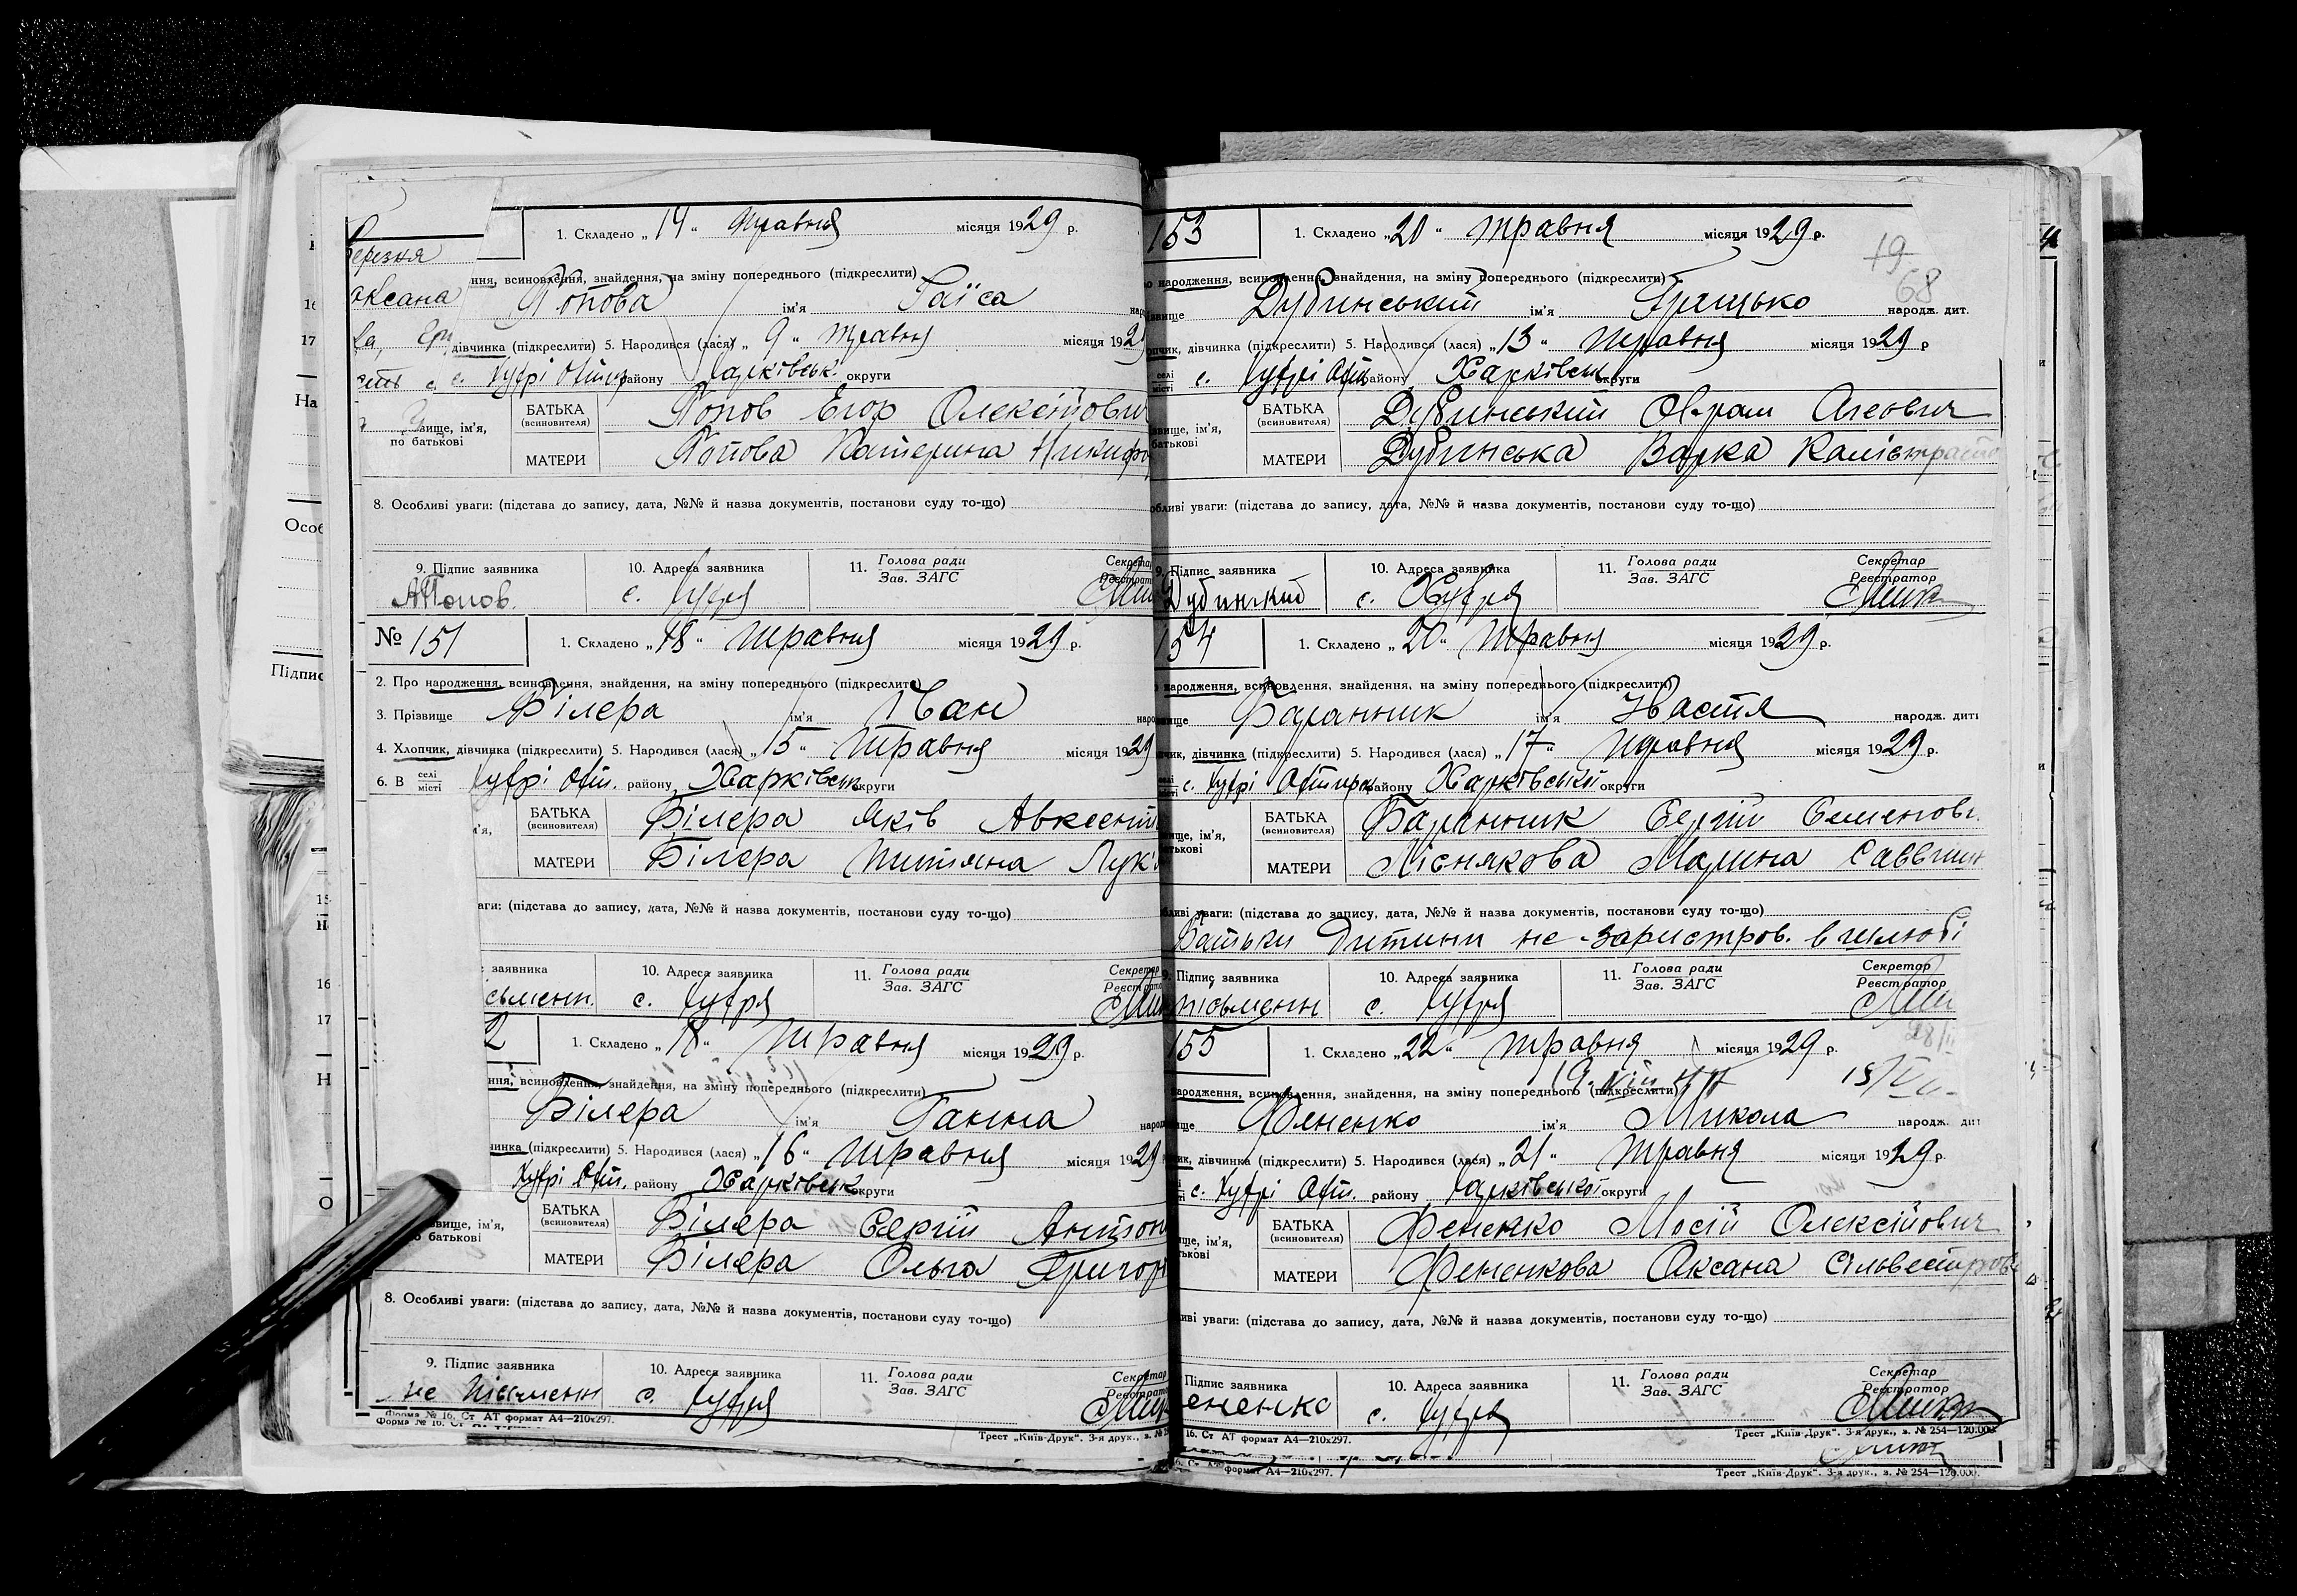 1. Складено „14“ травня місяця 1929 р.
ння, всиновлення, знайдення, на зміну попереднього (підкреслити)
Попова ім'я Раїса
дівчинка (підкреслити) 5. Народився (лася) „9“ травня місяця 192
с. Хухрі Охтир району Харківськ. округи
вище, ім'я, по батькові
БАТЬКА (всиновителя) Попов Егор Олексійович
МАТЕРИ Попова Катерина Никифо
8. Особливі уваги: (підстава до запису, дата, №№ й назва документів, постанови суду то-що)
9. Підпис заявника 10. Адреса заявника 11. Голова ради Зав. ЗАГС Секретар Реєстрат
Попов. с. Хухря
№ 151 1. Складено „18“ травня місяця 1929 р.
2. Про народження, всиновлення, знайдення, на зміну попереднього (підкреслит
3. Прізвище Білера ім'я Іван
4. Хлопчик, дівчинка (підкреслити) 5. Народився (лася) „15“ травня місяця 1929
6. В селі місті Хухрі Охт. району Харківськ округи
БАТЬКА (всиновителя) Білера Яків Авксент
МАТЕРИ Білера Титяна Лук'
аги: (підстава до запису, дата, №№ й назва документів, постанови суду то-що)
заявника 10. Адреса заявника 11. Голова ради Зав. ЗАГС Секретар Реєстр
сьменн. с. Хухря
2 1. Складено „18“ травня місяця 1929 р.
ння, всиновлення, знайдення, на зміну попереднього (підкреслити)
Білера ім'я Ганна
чинка (підкреслити) 5. Народився (лася) „16“ травня місяця 1929
Хухрі Охт. району Харківськ округи
вище, ім'я, о батькові
БАТЬКА (всиновителя) Білера Сергій Антон
МАТЕРИ Білера Ольга Григор
8. Особливі уваги: (підстава до запису, дата, №№ й назва документів, постанови суду то-що)
9. Підпис заявника 10. Адреса заявника 11. Голова ради Зав. ЗАГС Секретар
не письменн с. Хухря
Форма № 16. Ст АТ формат А4—210х297.
Трест „Київ-Друк“. 3-я друк., з. №
153 1. Складено „20“ травня місяця 1929 р.
19
68
народження, всиновлення, знайдення, на зміну попереднього (підкреслити)
Дубинський ім'я Грицько народж. дит.
дівчинка (підкреслити) 5. Народився (лася) „13“ травня місяця 1929 р
селі місті с. Хухрі Охт району Харківськ округи
БАТЬКА (всиновителя) Дубинський Оврам
МАТЕРИ Дубинська Варка Калістрат
обливі уваги: (підстава до запису, дата, №№ й назва документів, постанови суду то-що)
9. Підпис заявника 10. Адреса заявника 11. Голова ради Зав. ЗАГС Секретар Реєстратор
Дубинский с. Хухря
154 1. Складено „20“ травня місяця 1929 р.
народження, всиновлення, знайдення, на зміну попереднього (підкреслити)
Баранник ім'я Настя народж. дит
дівчинка (підкреслити) 5. Народився (лася) „17“ травня місяця 1929 р.
с. Хухрі Охтирк району Харківської округи
БАТЬКА (всиновителя) Баранник Сергій Семенови
МАТЕРИЛіснякова Марина Саввишн
ливі уваги: (підстава до запису, дата, №№ й назва документів, постанови суду то-що)
Батьки дитини не заристров. в шлюбі
9. Підпис заявника 10. Адреса заявника 11. Голова ради Зав. ЗАГС Секретар Реєстратор
письменн с. Хухря
155 1. Складено „22“ травня місяця 1929 р.
народження, всиновлення, знайдення, на зміну попереднього (підкреслити)
Фененко ім'я Микола народж. ди
дівчинка (підкреслити) 5. Народився (лася) „21“ травня місяця 1929 р.
с. Хухрі Охт. району Харківської округи
БАТЬКА (всиновителя) Фененко Мосій Олексійович
МАТЕРИ Фененкова Оксана Сільвестров
иві уваги: (підстава до запису, дата, №№ й назва документів, постанови суду то-що)
Підпис заявника 10. Адреса заявника 11. Голова ради Зав. ЗАГС Секретар Реєстратор
ененко с. Хухря
16. Ст АТ формат А4—210х297.
Трест „Київ-Друк“. 3-я друк., з. № 254—120.000
формат А4—210х297.
Трест „Київ-Друк“. 3-я друк., з. № 254—120.000.